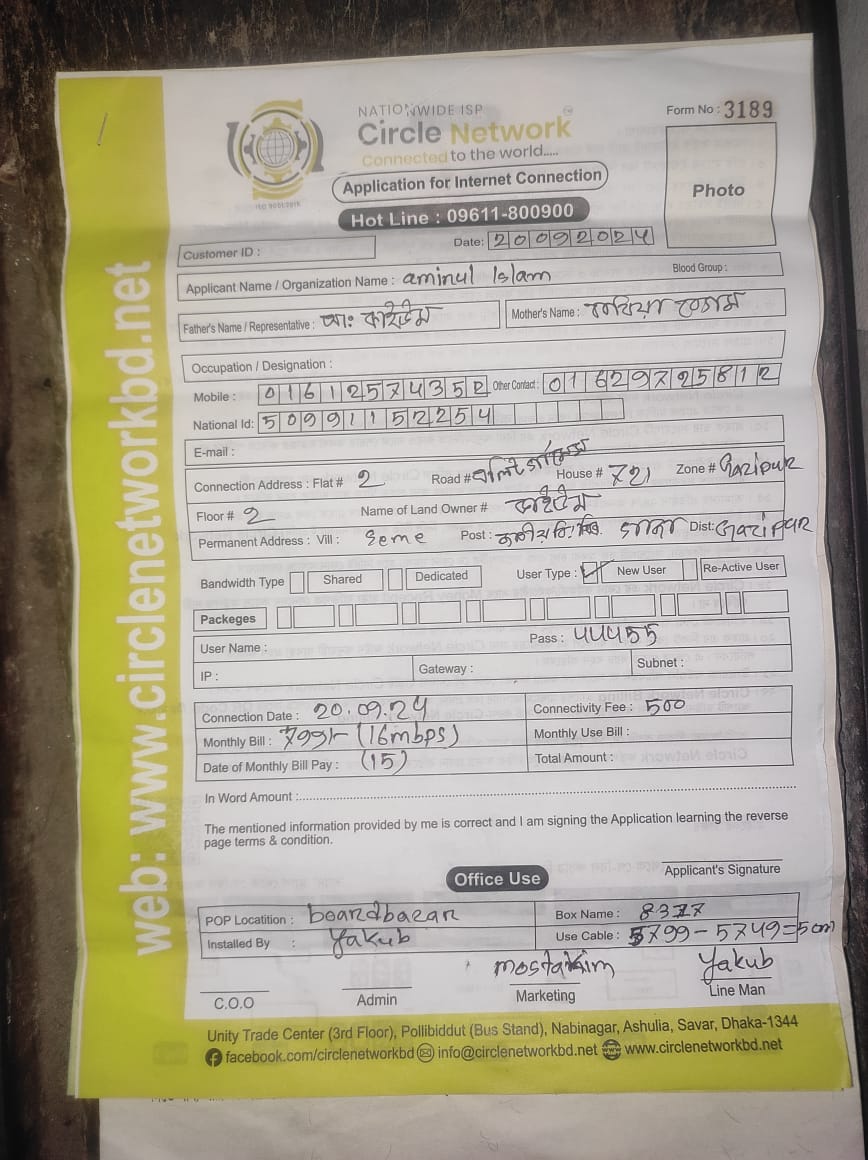 NATIONWIDE ISP
Circle Network
Connected to the world.....
Form No : 3189
Application for Internet Connection
Photo
Hot Line : 09611-800900
Date: 20092024
Customer ID :
Blood Group :
Applicant Name / Organization Name : aminul Islam
Father's Name / Representative : আঃ কাইউম Mother's Name :
Occupation / Designation :
Mobile : Other Contact : 01629725812
National Id: 50991152254
E-mail :
Connection Address : Flat # 2 Road # House # 721 Zone # Gazipur
Floor # 2 Name of Land Owner # কাইউম
Permanent Address : Vill : Seme Post : Dist: Gazipur
Bandwidth Type Shared Dedicated User Type : New User Re-Active User
Packeges
User Name : Pass : 44455
IP : Gateway : Subnet :
Connection Date : 20.09.24 Connectivity Fee : 500
Monthly Bill : 799/- (16mbps) Monthly Use Bill :
Date of Monthly Bill Pay : (15) Total Amount :
In Word Amount :
The mentioned information provided by me is correct and I am signing the Application learning the reverse
page terms & condition.
Applicant's Signature
Office Use
POP Locatition : boardbazar Box Name :
Installed By : Yakub Use Cable : 5799-5749=50m
mostakim Yakub
C.O.O Admin Marketing Line Man
Unity Trade Center (3rd Floor), Pollibiddut (Bus Stand), Nabinagar, Ashulia, Savar, Dhaka-1344
facebook.com/circlenetworkbd info@circlenetworkbd.net www.circlenetworkbd.net
web: www.circlenetworkbd.net